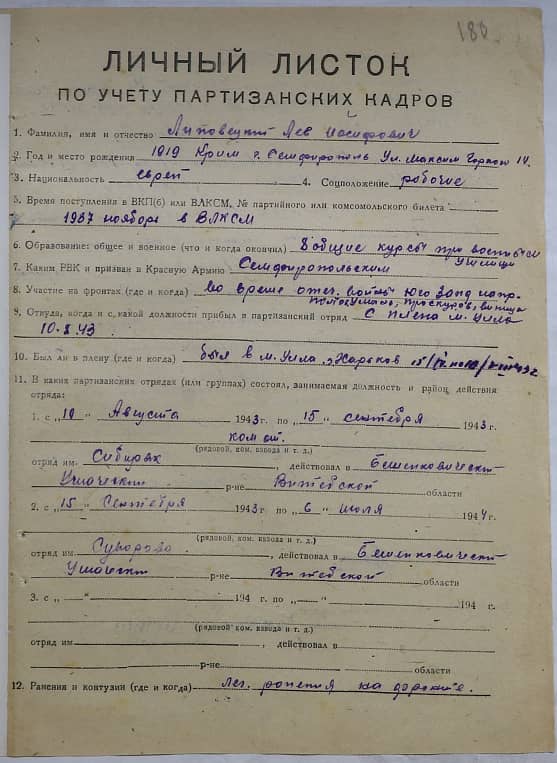 180
ЛИЧНЫЙ ЛИСТОК
ПО УЧЕТУ ПАРТИЗАНСКИХ КАДРОВ
1. Фамилия, имя и отчество Липовецкий Лев Иосифович
2. Год и место рождения 1919 Крим г. Семфиропољ Ул. Максим Горкого
3. Национальность еврей 4. Соцположение рабочие
5. Время поступления в ВКП(б) или ВЛКСМ, № партийного или комсомольского билета
1937 ноября в ВЛКСМ
6. Образование: общее и военное (что и когда окончил) общие курсы при
училищи
7. Каким РВК и призван в Красную Армию Семфиропольским
8. Участие на фронтах (где и когда) Во време отеч. войны юго запд напр.
Проскуров, Виница
9. Откуда, когда и с какой должности прибыл в партизанский отряд С плена м. Улла
10.8.43
10. Был ли в плену (где и когда) был в м. Улла, г. Харьков
11. В каких партизанских отрядах (или группах) состоял, занимаемая должность и район, действия
отряда:
1. с „10" Августа 1943 г. по „15" сентября 1943 г.
ком от.
(рядовой, ком. взвода и т. д.)
отряд им. Сибиряк , действовал в Бешенковическ
Ушачески р-не Витебской области
2. с „15" Сентября 1943 г. по „6" июля 1944 г.
(рядовой, ком. взвода и т. д.)
отряд им Суворова , действовал в Бешенковическ
Ушачески р-не Витебской области
3. с „ —" 194 г. по „—" 194 г.
(рядовой ком. взвода и т. д.)
отряд им , действовал в
р-не области
12. Ранения и контузии (где и когда) Лег. ранения на